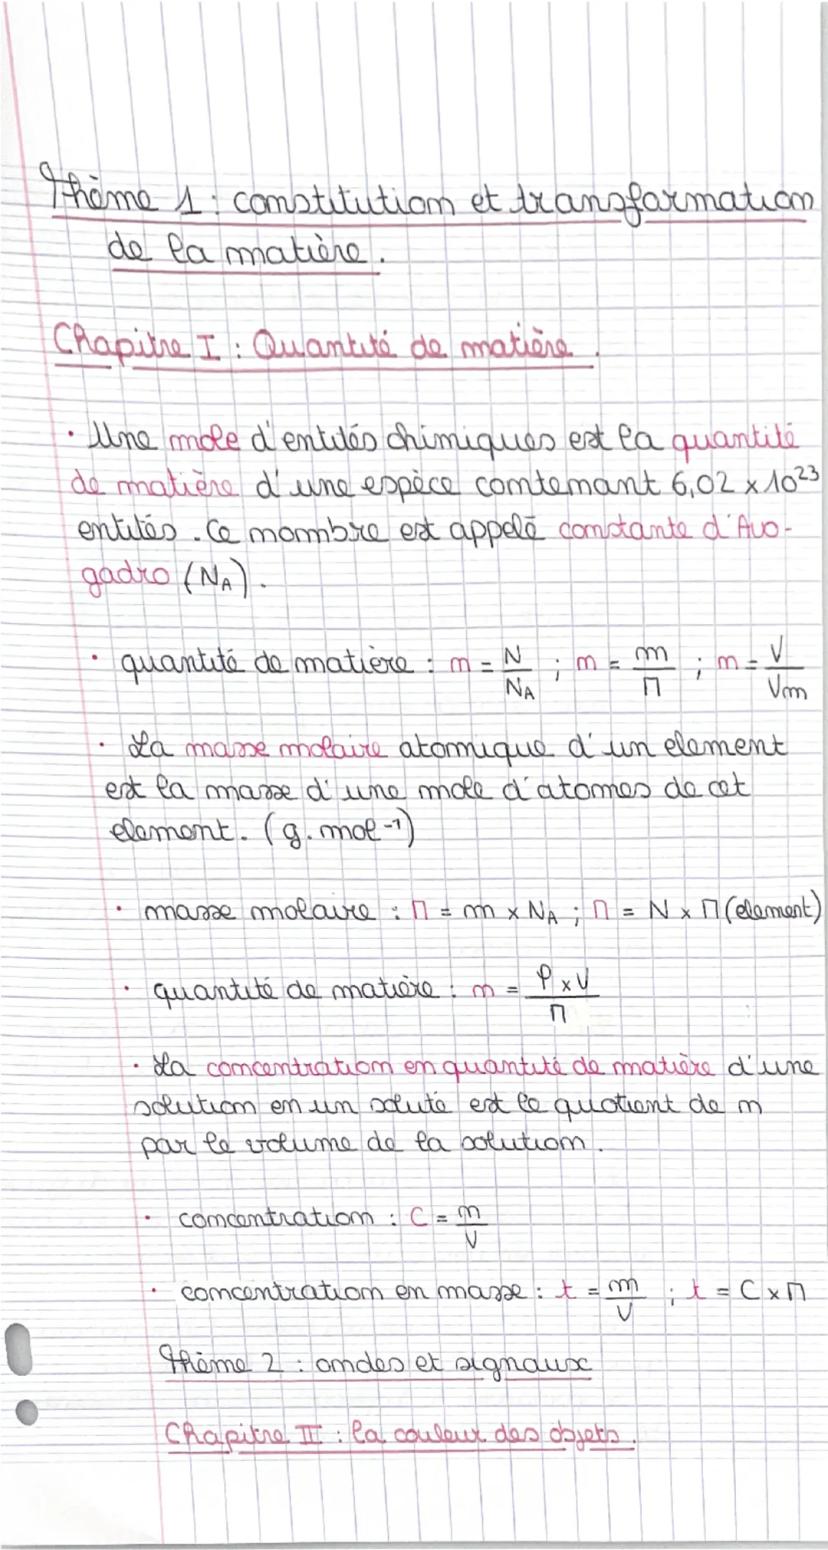 Thème 1 : constitution et transformation
de la matière.
Chapitre I : Quantité de matière.
· Une mole d'entités chimiques est la quantité
de matière d'une espèce contenant 6,02 x 10²³
entités. Ce nombre est appelé constante d'Avo-
gadro (NA).
· quantité de matière : n = N/NA ; n = m/M ; n = V/Vm
· La masse molaire atomique d'un element
est la masse d'une mole d'atomes de cet
element. (g.mol⁻¹)
· masse molaire : M = m x NA ; M = N x M(element)
· quantité de matière : n = ρ x V/M
· La concentration en quantité de matière d'une
solution en un soluté est le quotient de n
par le volume de la solution.
· concentration : C = n/V
· concentration en masse : t = m/V ; t = C x M
Thème 2 : ondes et signaux
Chapitre II : la couleur des objets.